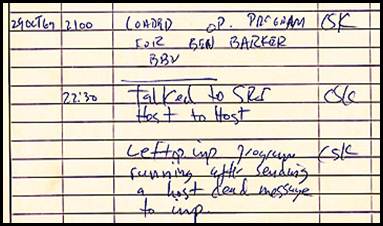 29 OCT 69 2100 LOADED OP. PROGRAM CSK
FOR BEN BARKER
BBV
22:30 Talked to SRI CSK
Host to Host
Left op. imp program CSK
running after sending
a host dead message
to imp.